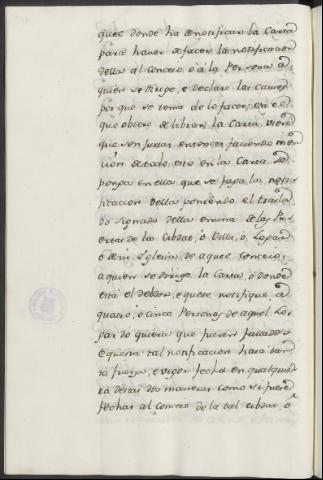 quee donde ha de notificar la Carta
para haver de facer la notificacion
della al conceio ò à la Persona à
quien se dirige, e declare las causas
por que se teme de lo facer, e si el
que obiere de librar la Carta viere
que son justas entonces faciendo men
cion de todo esto en la Carta se
ponga en ella que se faga la noti
ficacion della poniendo el trasla
do signado della en una de las Pu
ertas de la Cibdat, ò Villa, ò Logar
ò de la Iglesia de aquel Conceio,
a quien se dirige la Carta, ò donde
está el debdor, e que se notifique à
quatro, ò cinco Personas de aquel Lo
gar do quiera que fueren falladas
e que esta tal notificacion haia tan
ta fuerza, e vigor fecha en qualquie
ra destas dos maneras como si fuere
fechas al Conceio de la tal cibdat ò